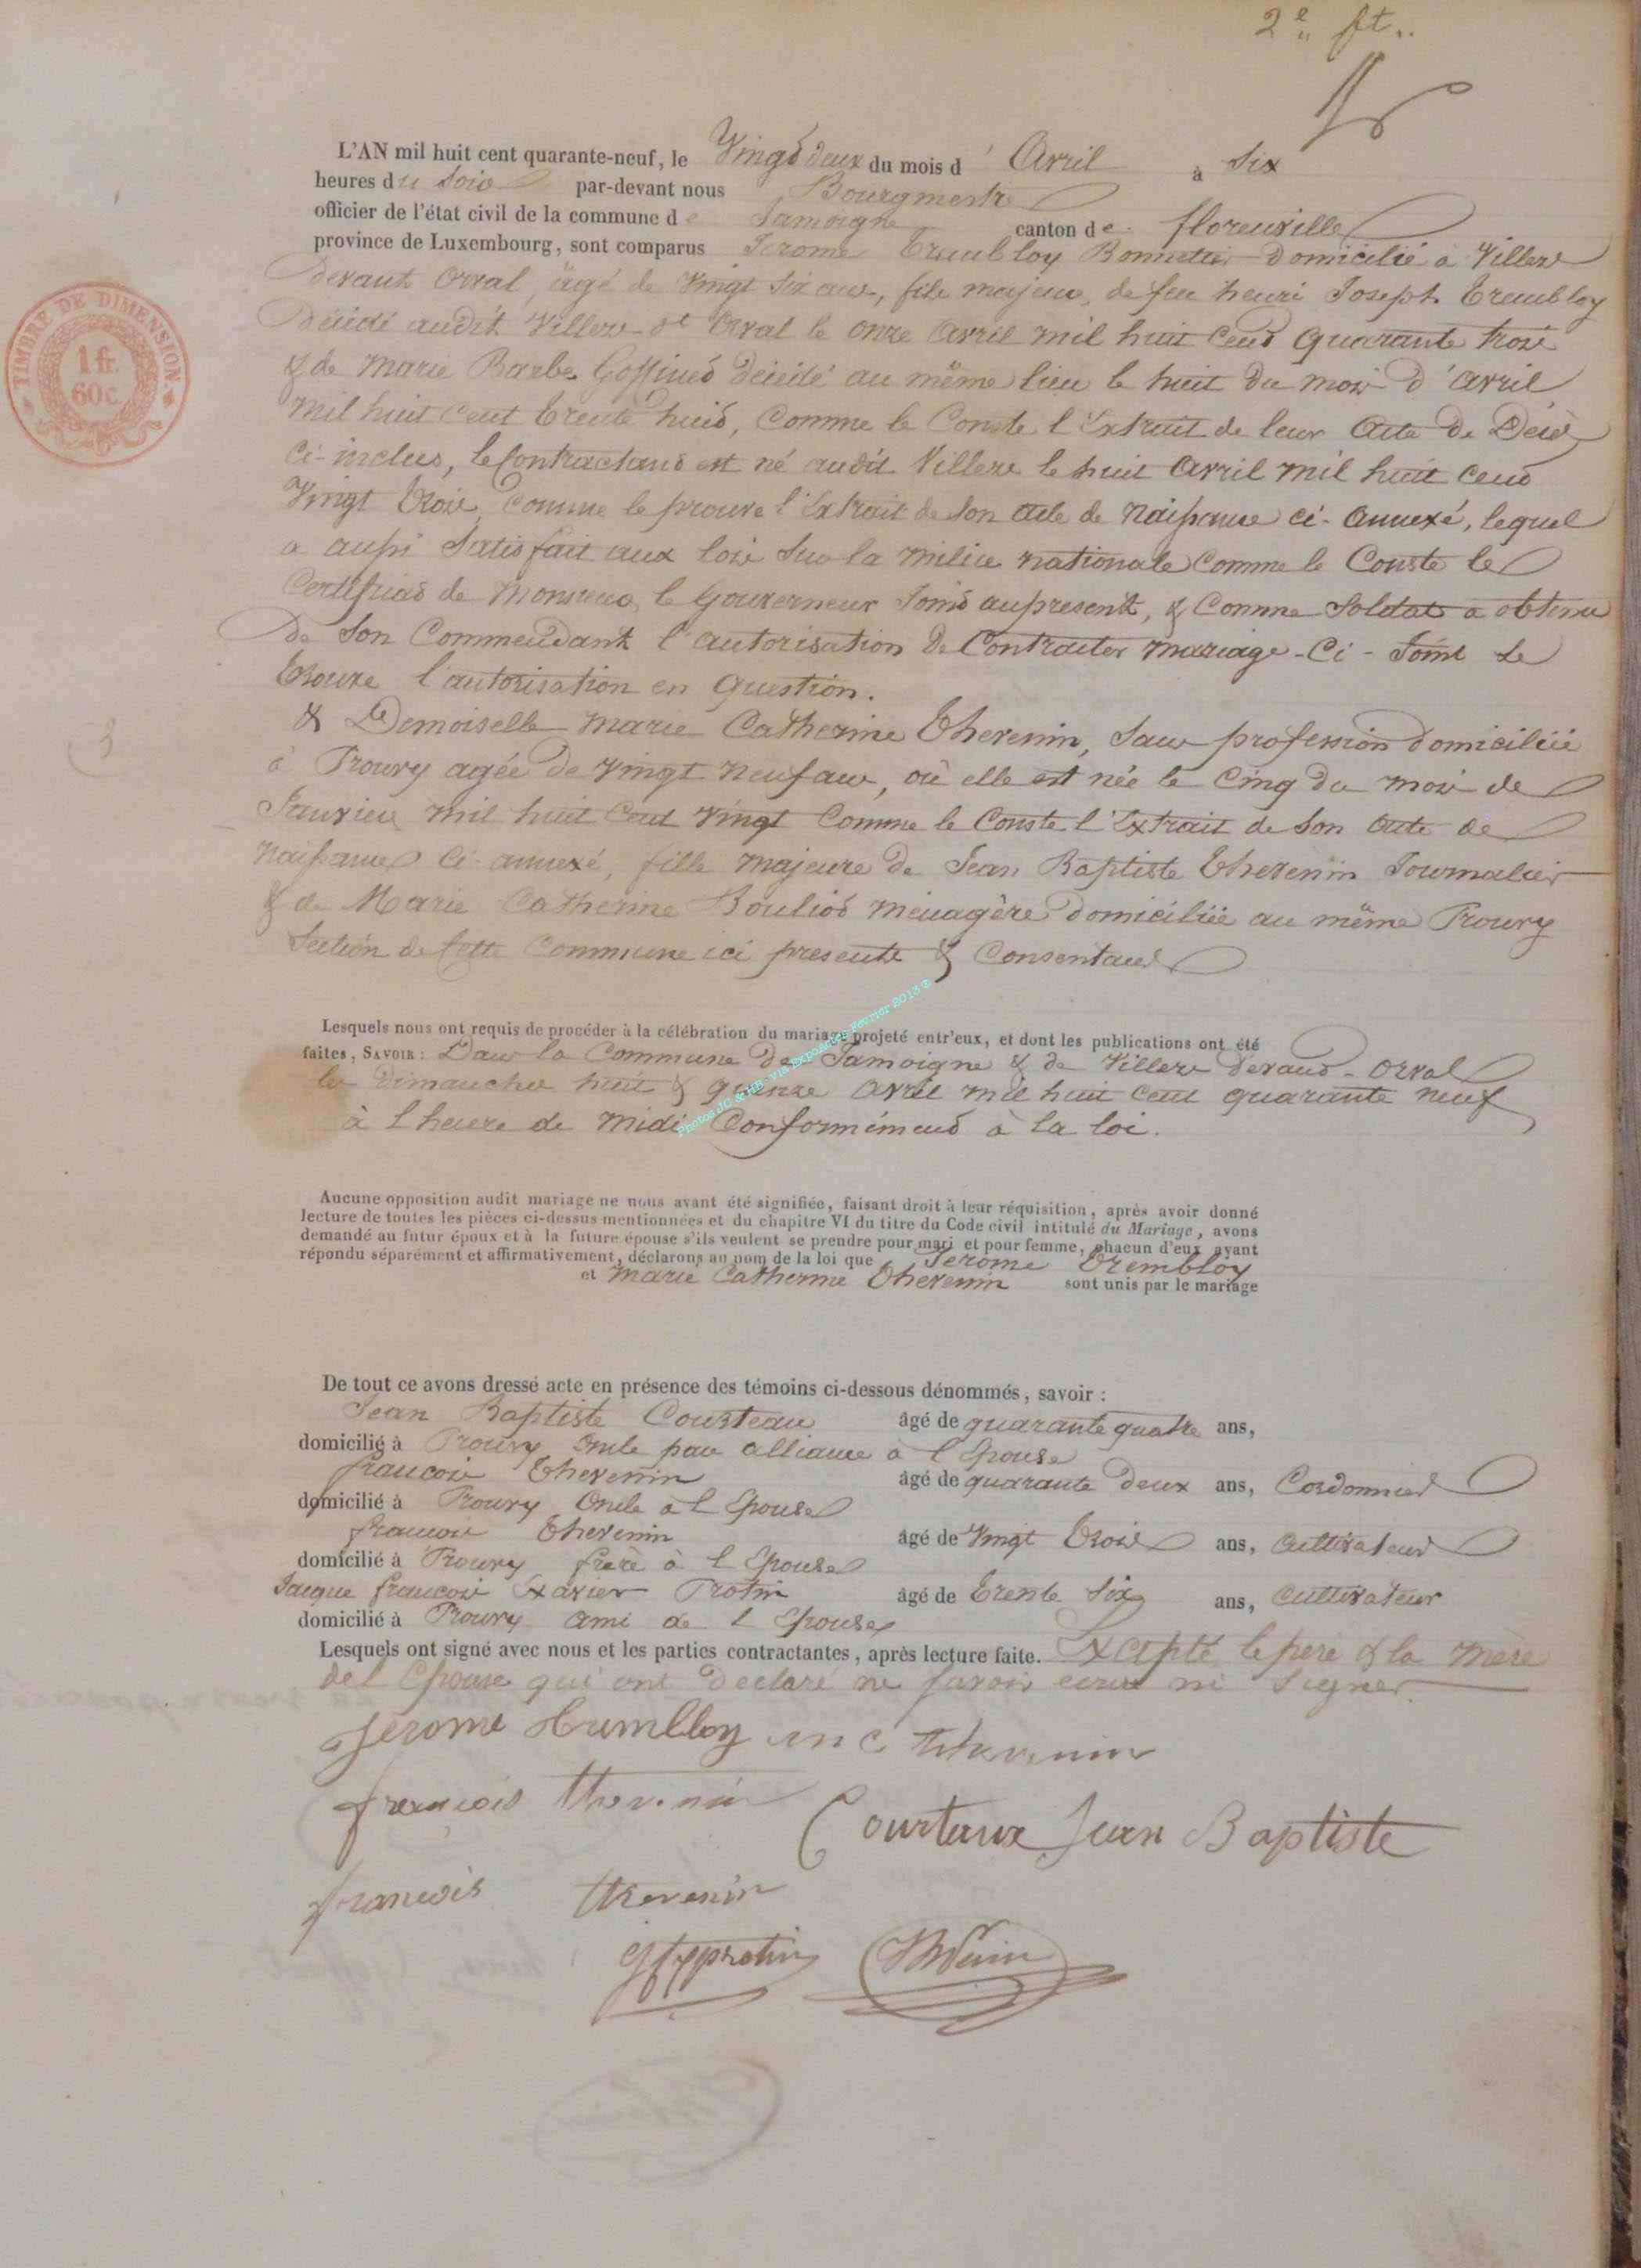 2e ft.
L'AN mil huit cent quarante-neuf, le Vingt deux du mois d'Avril à Six
heures du Soir par-devant nous Bourgmestre
officier de l'état civil de la commune de Jamoigne canton de florenville
province de Luxembourg, sont comparus Jerome Trembloy Bonnetier domicilié à Villers
devant Orval, âgé de Vingt Six ans, fils majeur, de feu henri Joseph Trembloy
Décédé audit Villers dt Orval le onze Avril mil huit Cent Quarante trois
& de Marie Barbe Goffinet décédé au même lieu le huit du mois d'avril
mil huit Cent trente huit, Comme le Conste l'Extrait de leur Acte de Décès
Ci-inclus, le Contractant est né audit Villers le huit Avril mil huit Cent
Vingt trois, Comme le prouve l'Extrait de Son Acte de Naissance ci-Annexé, lequel
a aussi Satisfait aux lois Sur la milice nationale Comme le Conste le
Certificat de Monsieur le Gouverneur Joint au present, & Comme Soldat a obtenu
de Son Commendant l'autorisation de Contracter mariage - Ci-Joint Se
trouve l'autorisation en Question.
& Demoiselle Marie Catherine Thevenin, Sans profession domiciliée
à Prouvy agée de Vingt Neuf ans, où elle est née le Cinq du mois de
Janvier mil huit Cent Vingt Comme le Conste l'Extrait de Son Acte de
Naissance Ci-annexé, fille majeure de Jean Baptiste Thevenin Journalier
& de Marie Catherine Bouliot menagère domiciliée au même Prouvy
Section de Cette Commune ici presente & Consentant
Lesquels nous ont requis de procéder à la célébration du mariage projeté entr'eux, et dont les publications ont été
faites, SAVOIR : Dans la Commune de Jamoigne & de Villers devant-Orval
les dimanches huit & quinze Avril mil huit cent quarante neuf
à l'heure de midi Conformément à la loi.
Photos JC & HB via Exposition Fevrier 2013 ©
Aucune opposition audit mariage ne nous ayant été signifiée, faisant droit à leur réquisition, après avoir donné
lecture de toutes les pièces ci-dessus mentionnées et du chapitre VI du titre du Code civil intitulé du Mariage, avons
demandé au futur époux et à la future épouse s'ils veulent se prendre pour mari et pour femme, chacun d'eux ayant
répondu séparément et affirmativement, déclarons au nom de la loi que Jerome Trembloy
et Marie Catherine Thevenin sont unis par le mariage
De tout ce avons dressé acte en présence des témoins ci-dessous dénommés, savoir :
Jean Baptiste Courteau âgé de quarante quatre ans,
domicilié à Prouvy Oncle par alliance à l'Epouse
francois Thevenin âgé de quarante deux ans, Cordonnier
domicilié à Prouvy Oncle à l'Epouse
francois Thevenin âgé de Vingt trois ans, Cultivateur
domicilié à Prouvy frère à l'Epouse
Jacque francois Xavier Protin âgé de trente Six ans, Cultivateur
domicilié à Prouvy ami de l'Epouse
Lesquels ont signé avec nous et les parties contractantes, après lecture faite. Excepté le pere & la mere
de l'Epouse qui ont declaré ne savoir ecrire ni Signer.
Jerome trembloy m c thevenin
francois thevenin
Courteaux Jean Baptiste
francois thevenin
jfxprotin
TIMBRE DE DIMENSION.
1 fr.
60 c.
3